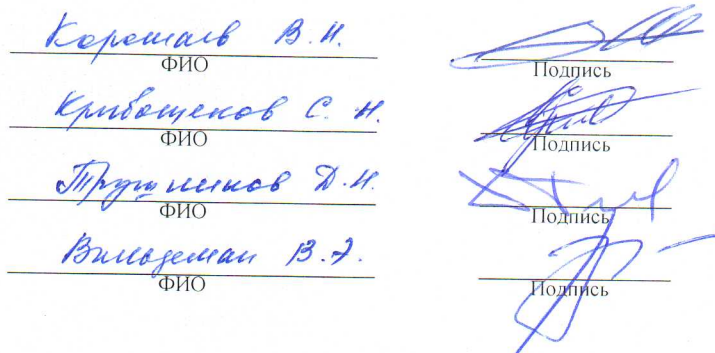 Коротаев В.Н.
ФИО Подпись
Кривощеков С.Н.
ФИО Подпись
Трушников Д.Н.
ФИО Подпись
Вильдеман В.Э.
ФИО Подпись